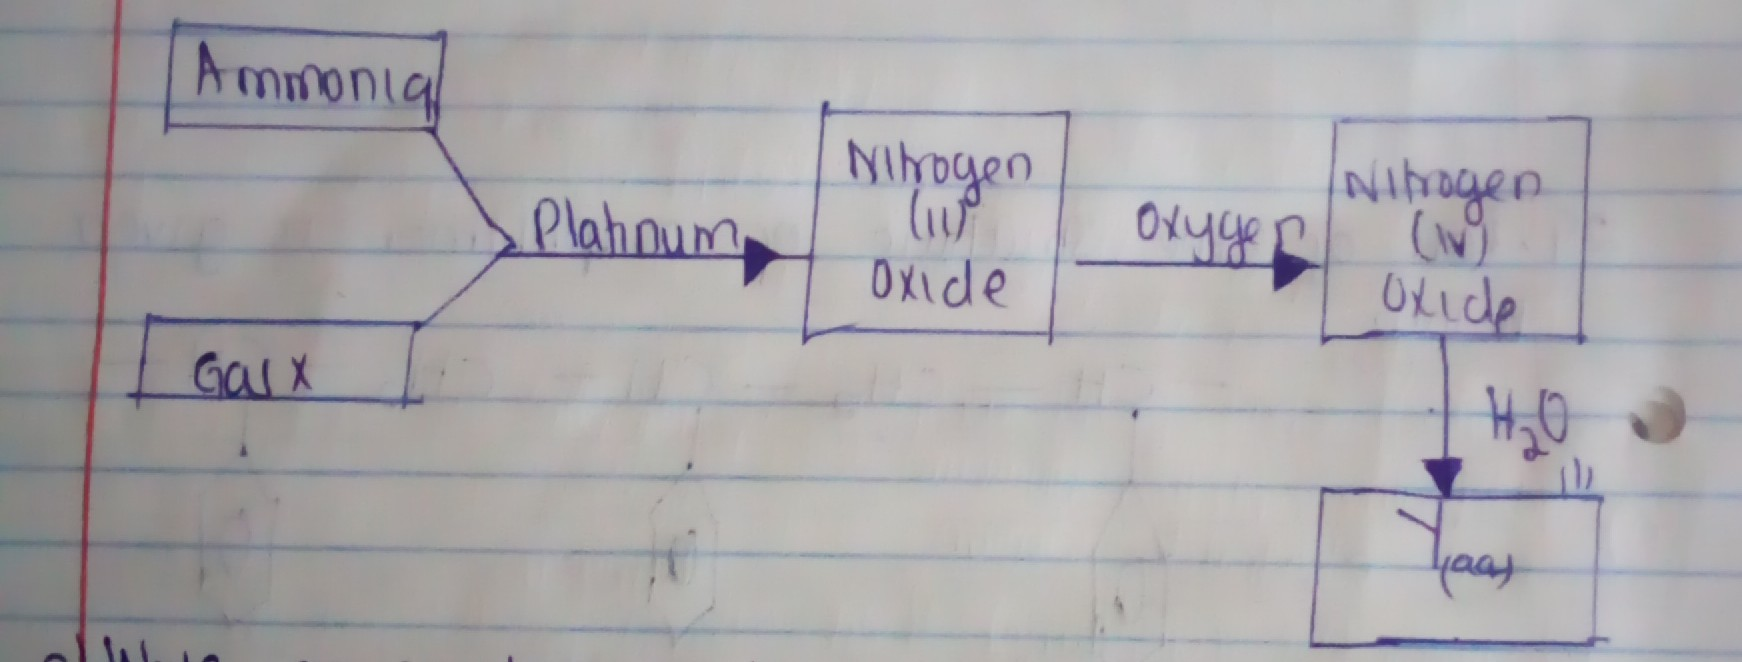 Ammonia
Gas X
Platinum
Nitrogen
(II)
Oxide
Oxygen
Nitrogen
(IV)
Oxide
H₂O
Y(aq)